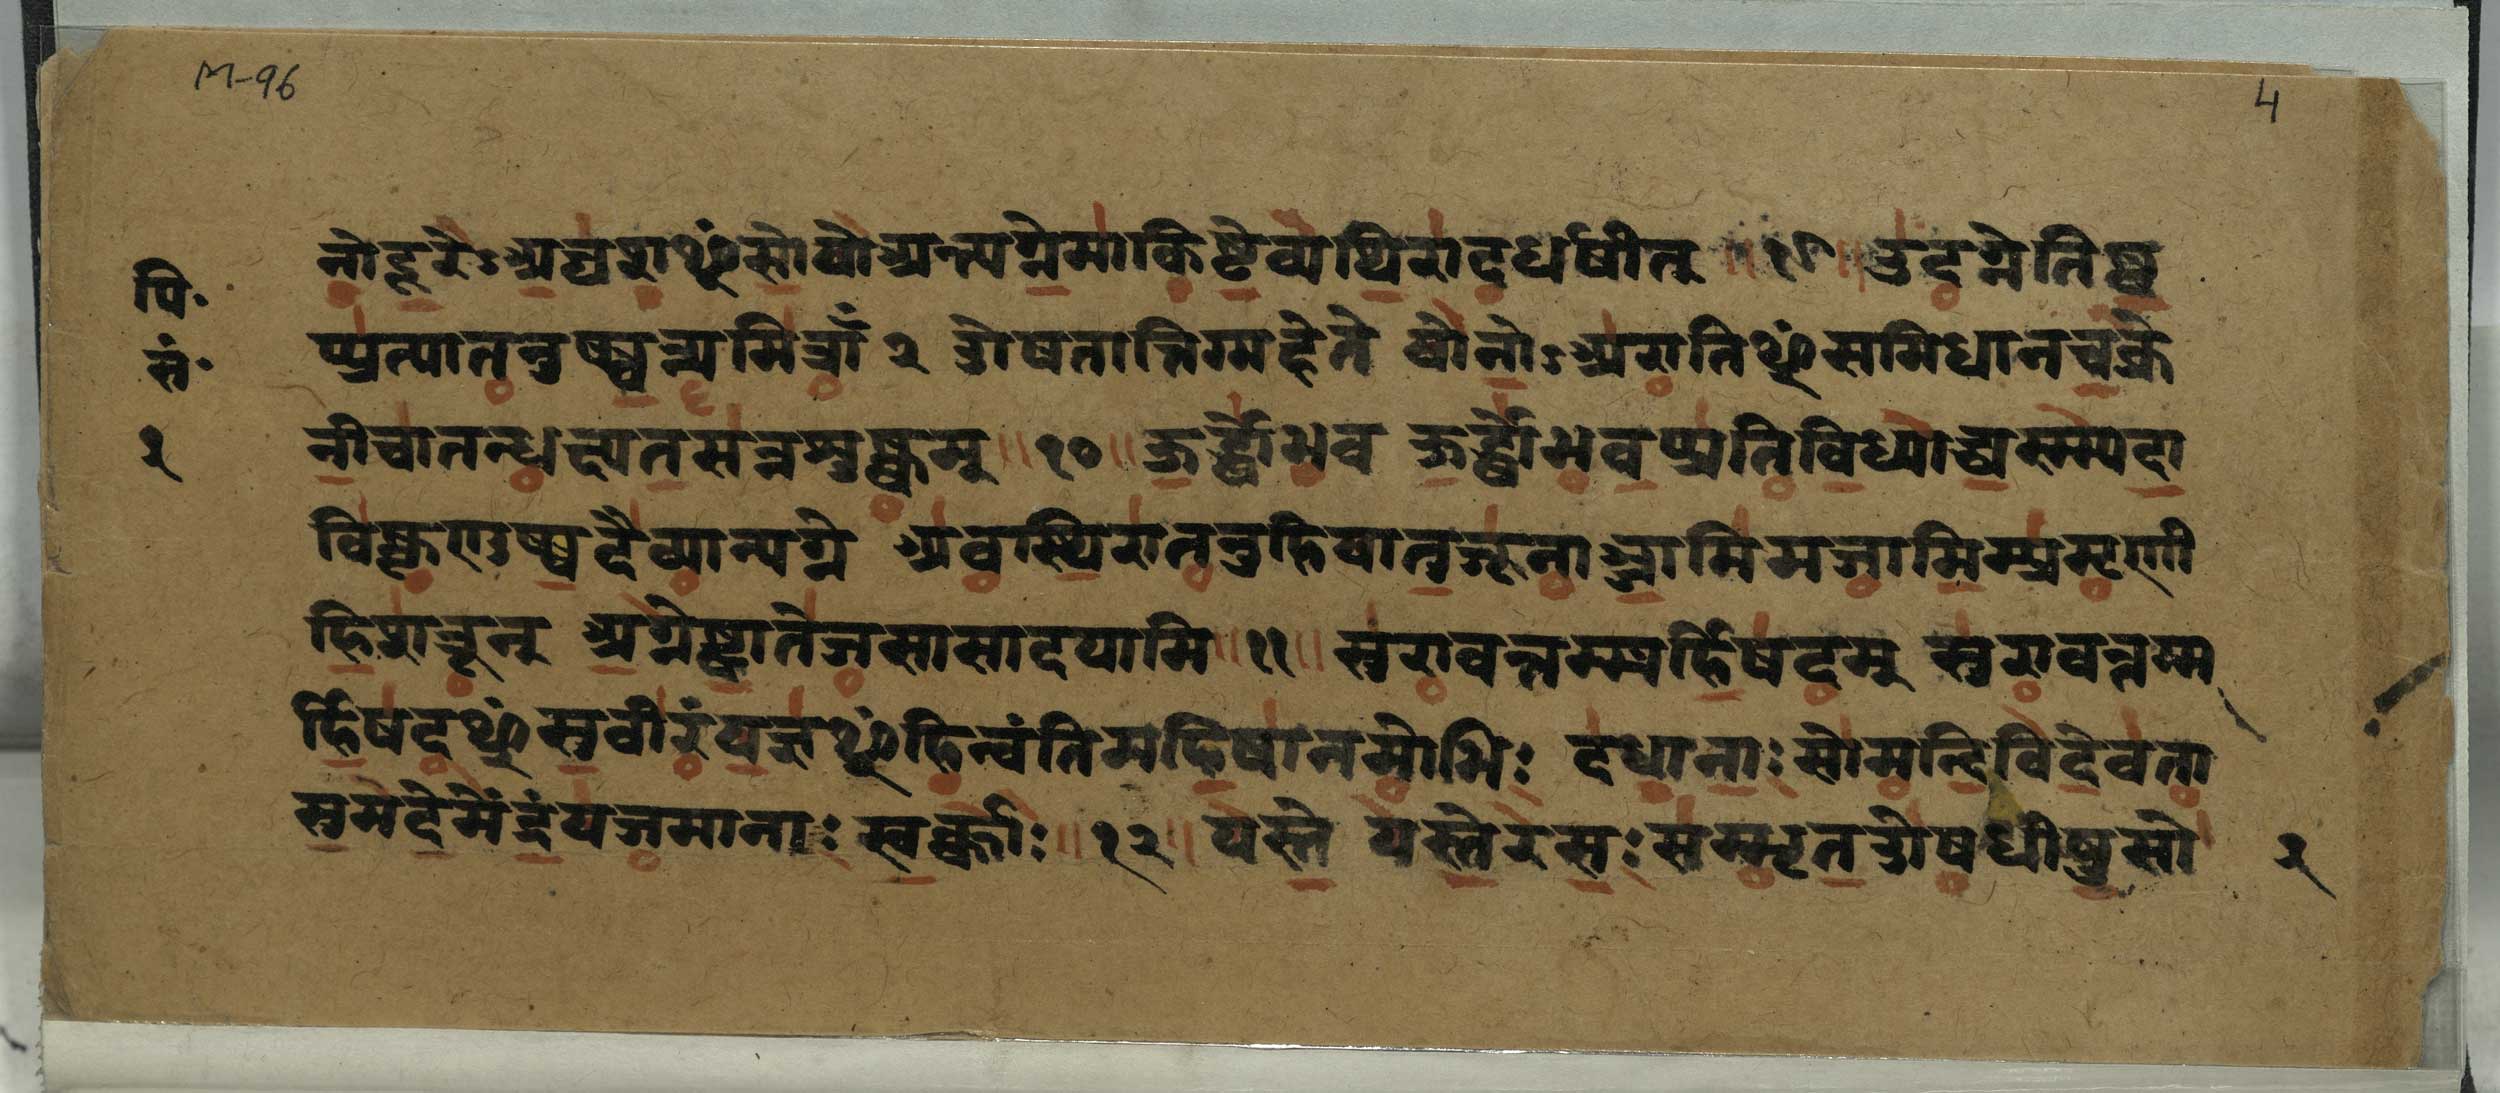 M-96
4
नोदूरेऽअघशꣳसोयोअन्त्यग्नेमाकिष्टेव्यथिरादधर्षीत् ॥ ९ ॥ उदग्नेतिष्ठ
पि॰
प्प्रत्यातनुष्ष्वन्यमित्राँ २ ओषतात्तिग्महेते योनोऽअरातिꣳसमिधानचक्रे
सं॰
नीचातन्धक्ष्यतसन्नशुष्कम् ॥ १० ॥ ऊर्द्ध्वोभव ऊर्द्ध्वोभवप्प्रतिविध्याध्यस्म्मदा
२
विष्कृणुष्ष्वदैव्यान्यग्ने अवस्थिरातनुहियातुजूनाञ्जामिमजामिम्प्रमृणी
हिशत्रून् अग्नेष्ट्वातेजसासादयामि ॥ ११ ॥ सुरावन्तम्बर्हिषदम् सुरावन्तम्ब
र्हिषदꣳसुवीरंयज्ञꣳहिन्वंतिमहिषानमोभिः दधानाःसोमन्दिविदेवता
सुमदेमेंद्रंयजमानाः स्वर्क्काः ॥ १२ ॥ यस्ते यस्तेरसःसम्भृतओषधीषुसो
२